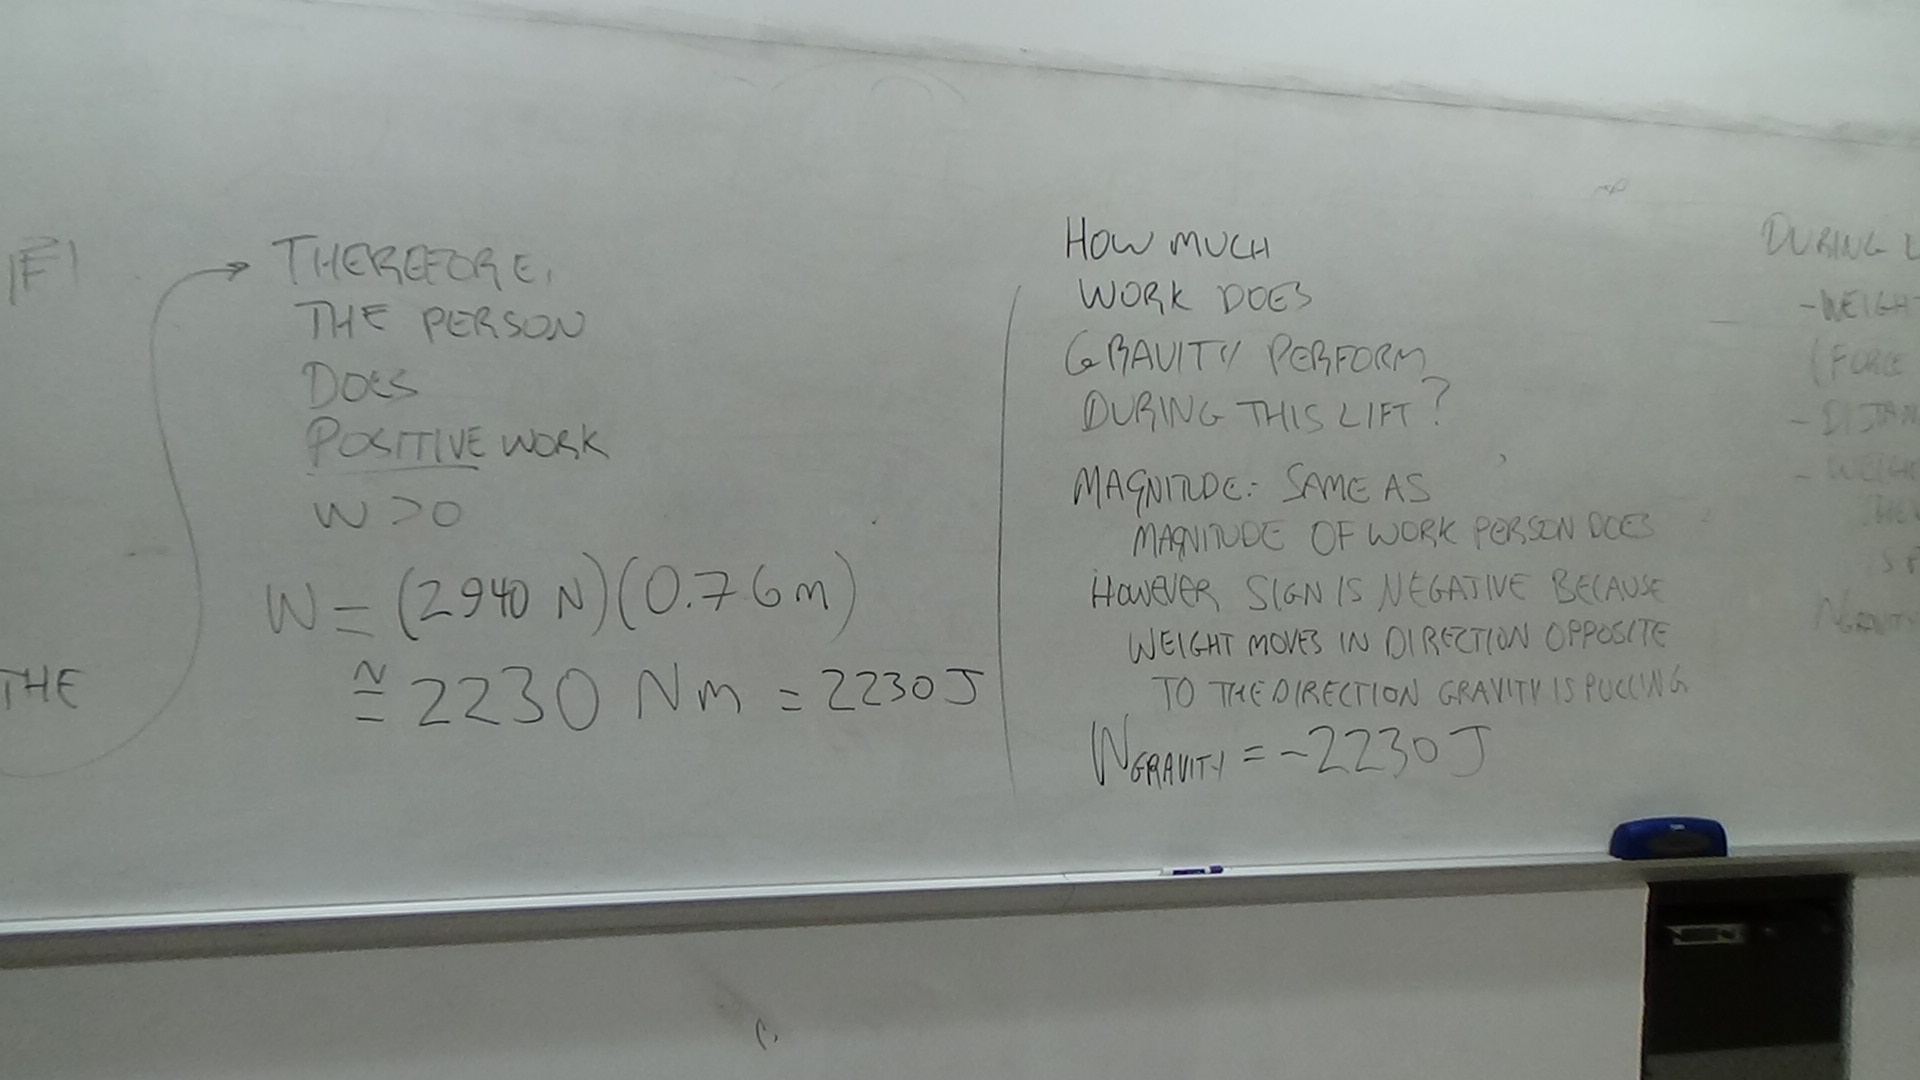 |F|
THE
THEREFORE,
THE PERSON
DOES
POSITIVE WORK
W > 0
W = (2940 N)(0.76m)
≅ 2230 Nm = 2230 J
HOW MUCH
WORK DOES
GRAVITY PERFORM
DURING THIS LIFT?
MAGNITUDE: SAME AS
MAGNITUDE OF WORK PERSON DOES
HOWEVER SIGN IS NEGATIVE BECAUSE
WEIGHT MOVES IN DIRECTION OPPOSITE
TO THE DIRECTION GRAVITY IS PULLING
WGRAVITY = -2230 J
DURING L
- WEIGHT
(FORCE
- DISTAN
- WEIGH
IS P
WGRAVITY